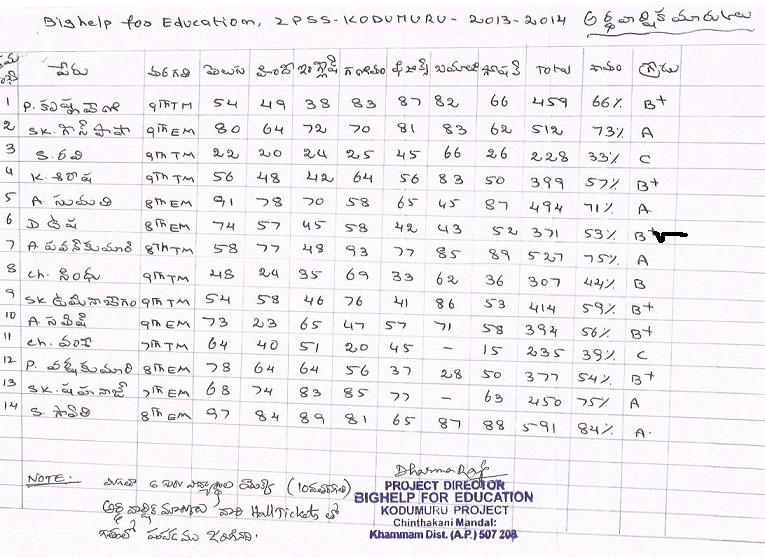 Bighelp for Education, ZPSS-KODUMURU - 2013-2014 అర్థ వార్షిక మార్కులు
పేరు తరగతి తెలుగు హిందీ ఇంగ్లీష్ గణితం TOTAL శాతం గ్రేడు
1 P. 9th TM 54 49 38 83 87 82 66 459 66% B+
2 SK. 9th EM 80 64 72 70 81 83 62 512 73% A
3 S. రవి 9th TM 22 20 24 25 45 66 26 228 33% C
4 K. శిరీష 9th TM 56 48 42 64 56 83 50 399 57% B+
5 A. సుమతి 8th EM 91 78 70 58 65 45 87 494 71% A
6 D 8th EM 74 57 45 58 42 43 52 371 53% B+
7 A. పవన్ కుమారి 8th TM 58 77 48 93 77 85 89 527 75% A
8 Ch. సింధు 9th TM 48 24 35 69 33 62 36 307 44% B
9 SK. 9th TM 54 58 46 76 41 86 53 414 59% B+
10 A. 9th EM 73 23 65 47 57 71 58 394 56% B+
11 Ch. వంశి 7th TM 64 40 51 20 45 - 15 235 39% C
12 P. 8th EM 78 64 64 56 37 28 50 377 54% B+
13 SK. 7th EM 68 74 83 85 77 - 63 450 75% A
14 S. 8th EM 97 84 89 81 65 87 88 591 84% A.
NOTE: మిగతా 6 గురు విద్యార్థుల యొక్క (10
వారి Hall Tickets తో
జరిగినది.
PROJECT DIRECTOR
BIGHELP FOR EDUCATION
KODUMURU PROJECT
Chinthakani Mandal:
Khammam Dist. (A.P.) 507 208